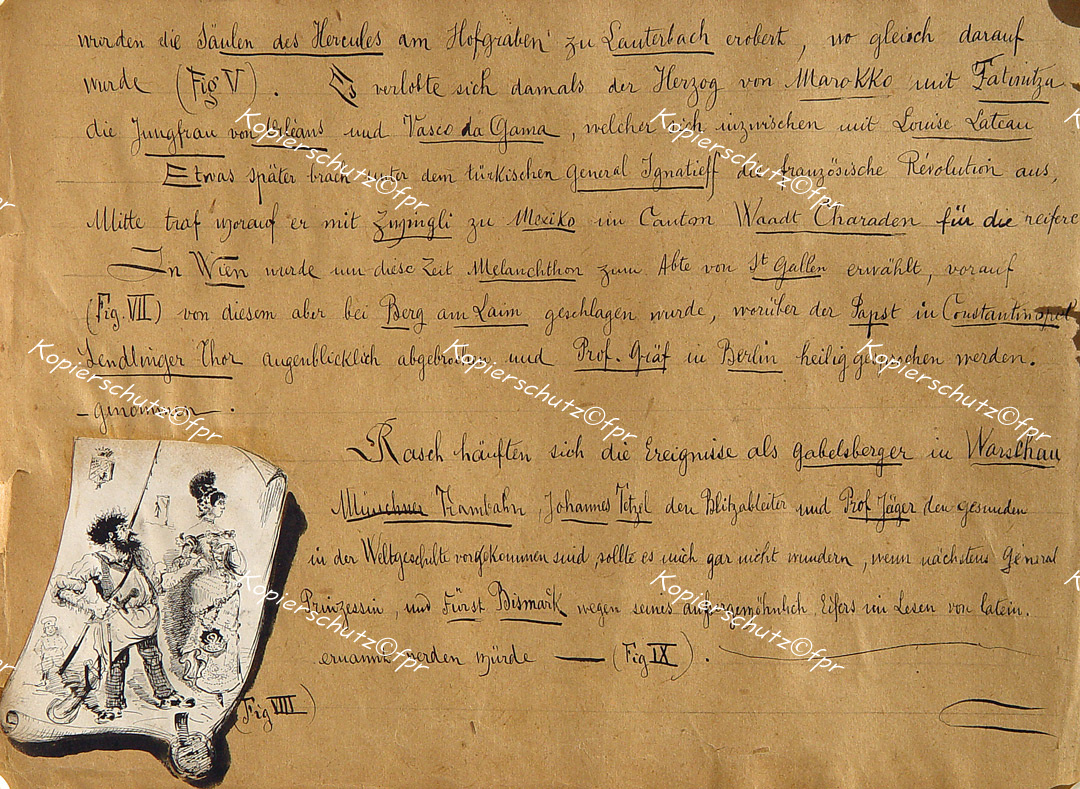 wurden die Säulen des Hercules am Hofgraben zu Lauterbach erobert, wo gleich darauf
wurde (Fig V). Es verlobte sich damals der Herzog von Marokko mit Fatinitza
die Jungfrau von Orléans und Vasco da Gama, welcher sich inzwischen mit Louise Lateau
Etwas später brach unter dem türkischen General Ignatieff die französische Révolution aus,
Mitte traf worauf er mit Zwingli zu Mexiko im Canton Waadt Charaden für die reifere
In Wien wurde um diese Zeit Melanchthon zum Abte von St Gallen erwählt, worauf
(Fig. VII) von diesem aber bei Berg am Laim geschlagen wurde, worüber der Papst in Constantinopel
Sendlinger Thor augenblicklich abgebrochen und Prof. Gräf in Berlin heilig gesprochen werden.
-genommen-.
Rasch häuften sich die Ereignisse als Gabelsberger in Warschau
Münchner Trambahn, Johannes Tetzel den Blitzableiter und Prof Jäger den gesunden
in der Weltgeschichte vorgekommen sind, sollte es mich gar nicht wundern, wenn nächstens General
Prinzessin, und Fürst Bismark wegen seines außergewöhnlich. Eifers im Lesen von latein.
ernannt werden würde — (Fig IX).
(Fig VIII)
Kopierschutz©fpr
Kopierschutz©fpr
Kopierschutz©fpr
Kopierschutz©fpr
Kopierschutz©fpr
Kopierschutz©fpr
Kopierschutz©fpr